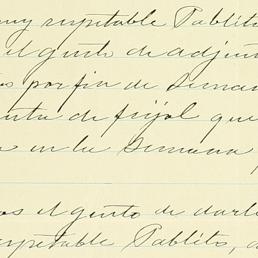 muy respetable Pablito
el gusto de adjun
os por fin de Seman
nta de frijol que
en la Semana
os el gusto de darle
respetable Pablito, a